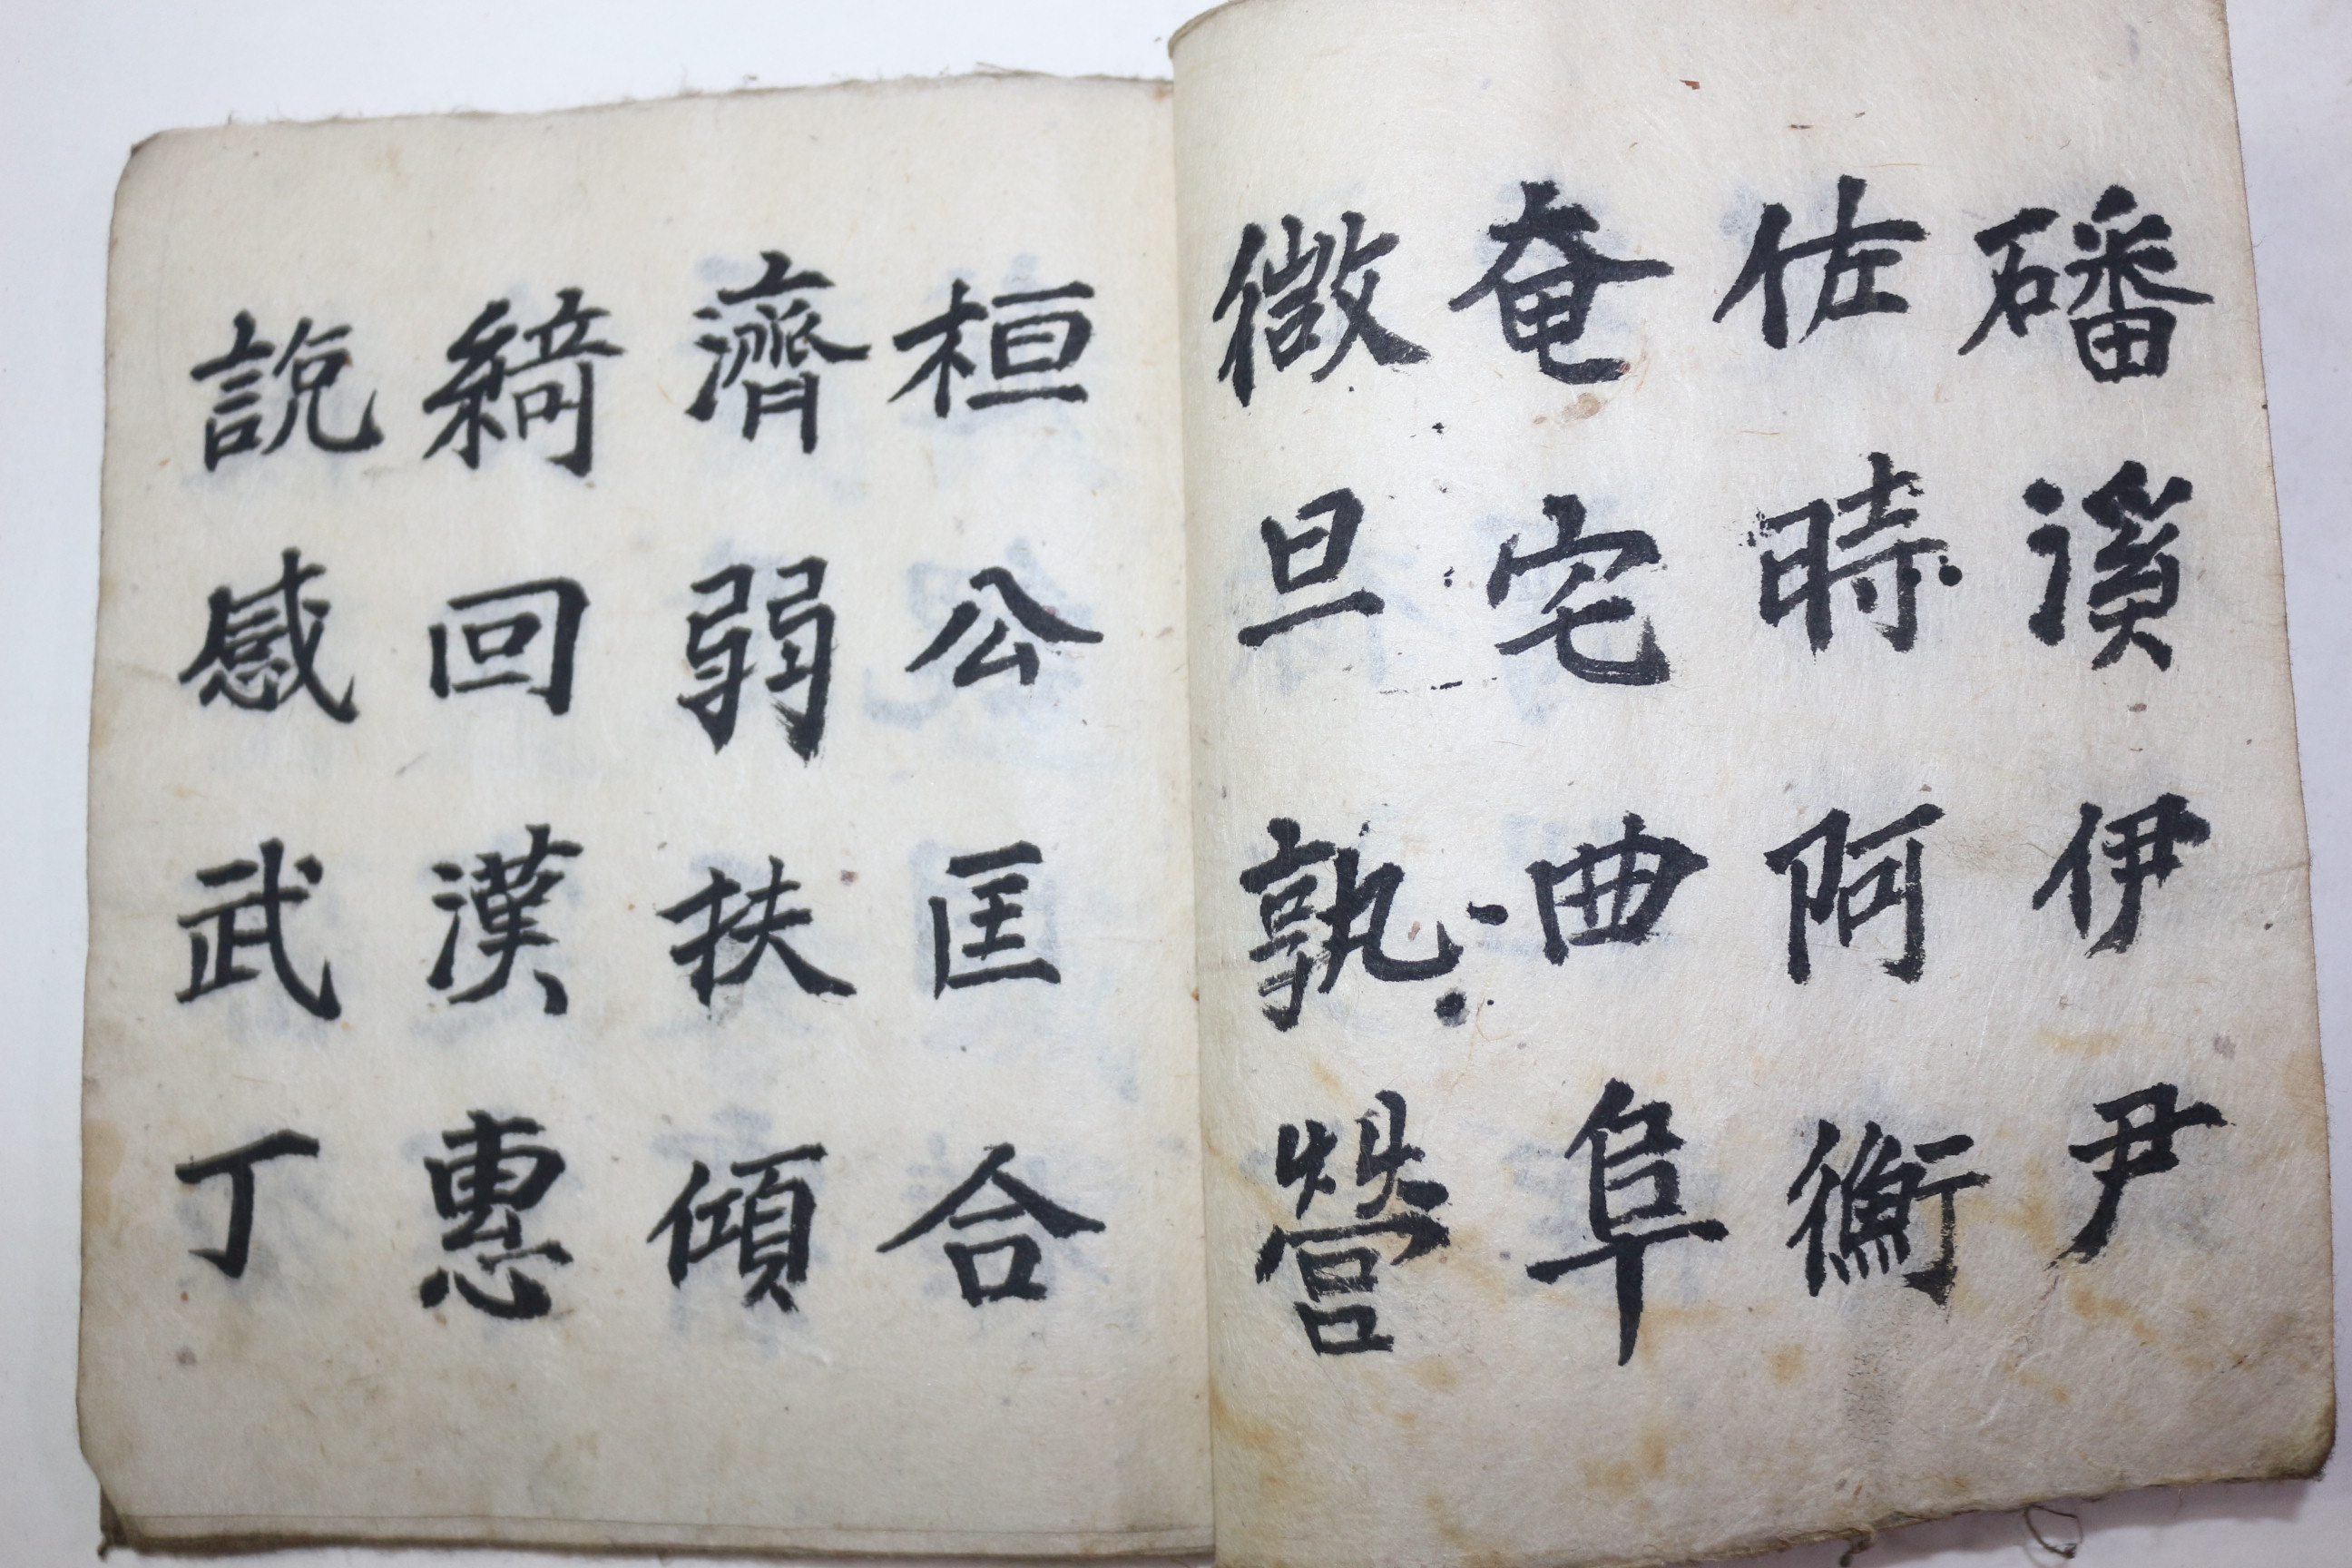 磻溪伊尹
佐時阿衡
奄宅曲阜
微旦孰營
桓公匡合
濟弱扶傾
綺回漢惠
說感武丁